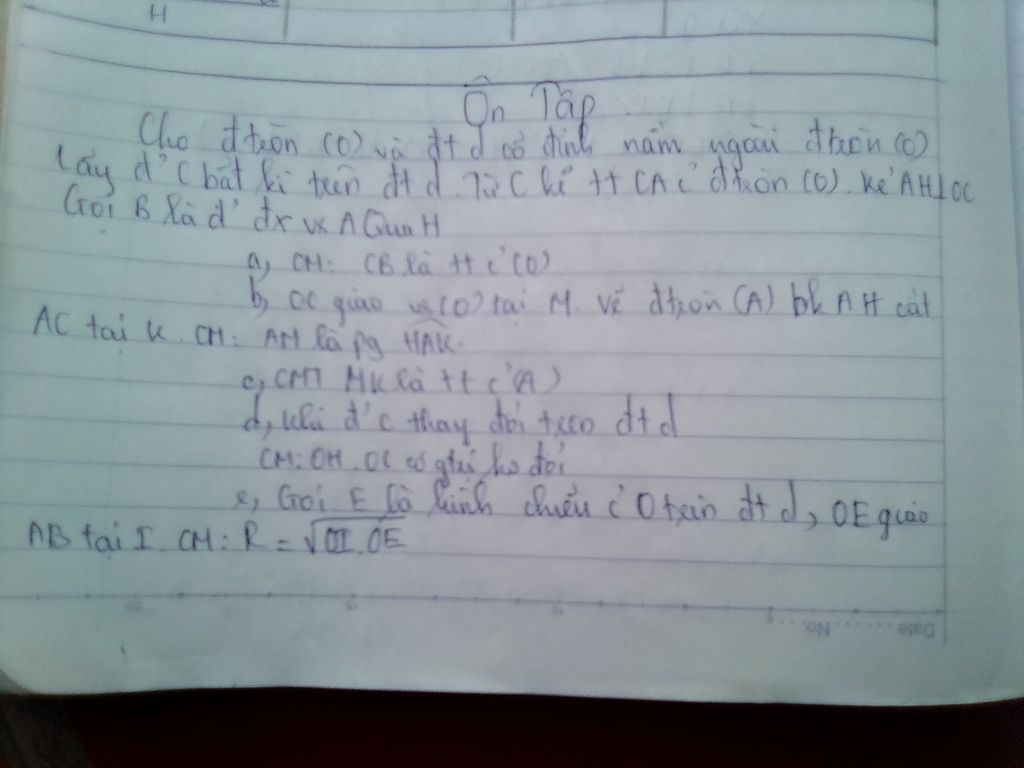 H
Ôn Tập
Cho đtròn (O) và đt d cố định nằm ngoài đtròn (O)
Lấy đ' C bất kì trên đt d. Từ C kẻ tt CA c' đtròn (O). Kẻ AH⊥OC
Gọi B là đ' đx vs A Qua H
a, CM: CB là tt c' (O)
b, OC giao vs (O) tại M. Vẽ đtròn (A) bk AH cắt
AC tại K. CM: AM là pg HAK.
c, CM MK là tt c' (A)
d, khi đ' C thay đổi trên đt d
CM: OH.OC có gtrị ko đổi
e, Gọi E là hình chiếu c' O trên đt d, OE giao
AB tại I. CM: R = √OI.OE
Date ........ No. ...